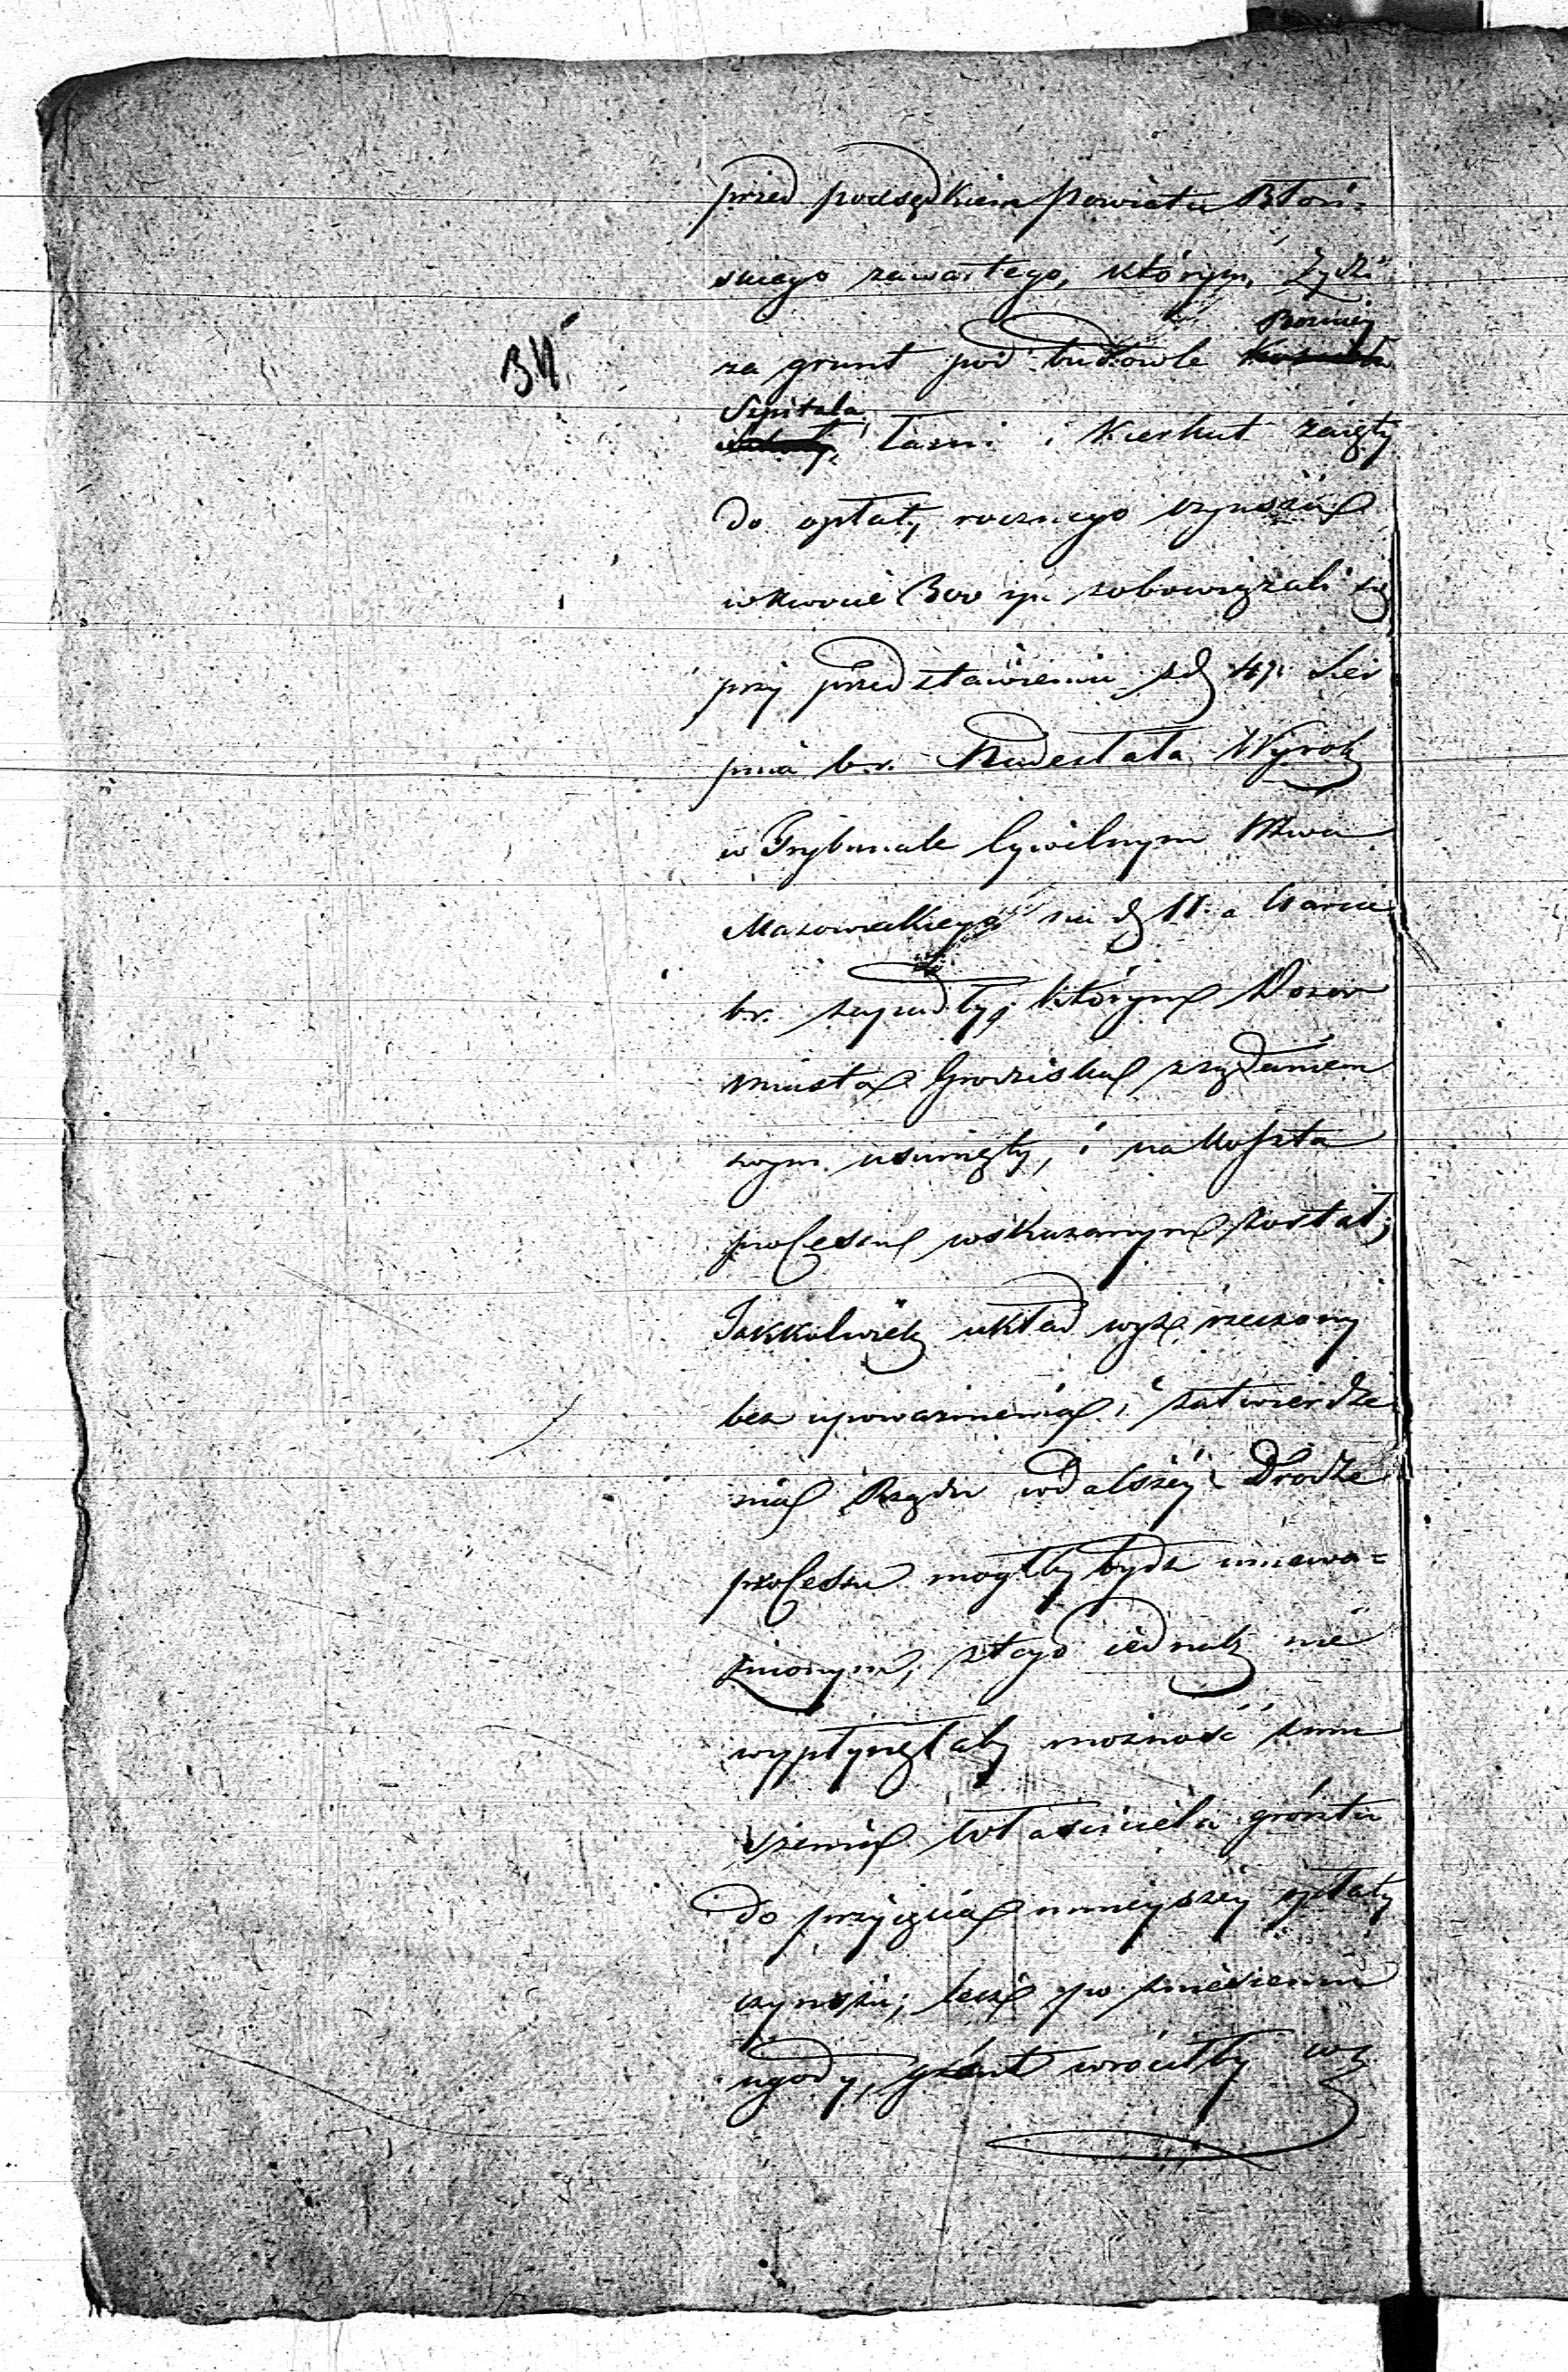 przed podsędkiem Powiatu Błoń=
skiego zawartego, którym, Żydzi
Boznicy
za grunt pod budowle
34
Szpitala
łazni i Kierkut zaięty
do opłaty rocznego czynszu
w kwocie 300 zp. zobowiązali się
przy przedstawieniu z d 47. Sier
pnia b.r. Nadesłała Wyrok
w Trybunale Cywilnym Wwa
Mazowieckiego na d 11. a Czerwca
b.r. zapadły, którym Dozor
Miasta Grodziska z żądaniem
swym usunięty, i na koszta
processu wskazanym został;
Jakkolwiek układ wyż rzeczony
bez upoważnienia i zatwierdze
nia Rządu w dalszéy Drodze
processu mogłby bydz uniewa=
żnionym, z tego iednak nie
wypłynęłaby możność zmu
szenia Właściciela gróntu
do przyięcia mnieyszéy opłaty
czynszu; lecz po zniesieniu
ugody, grónt wróciłby w